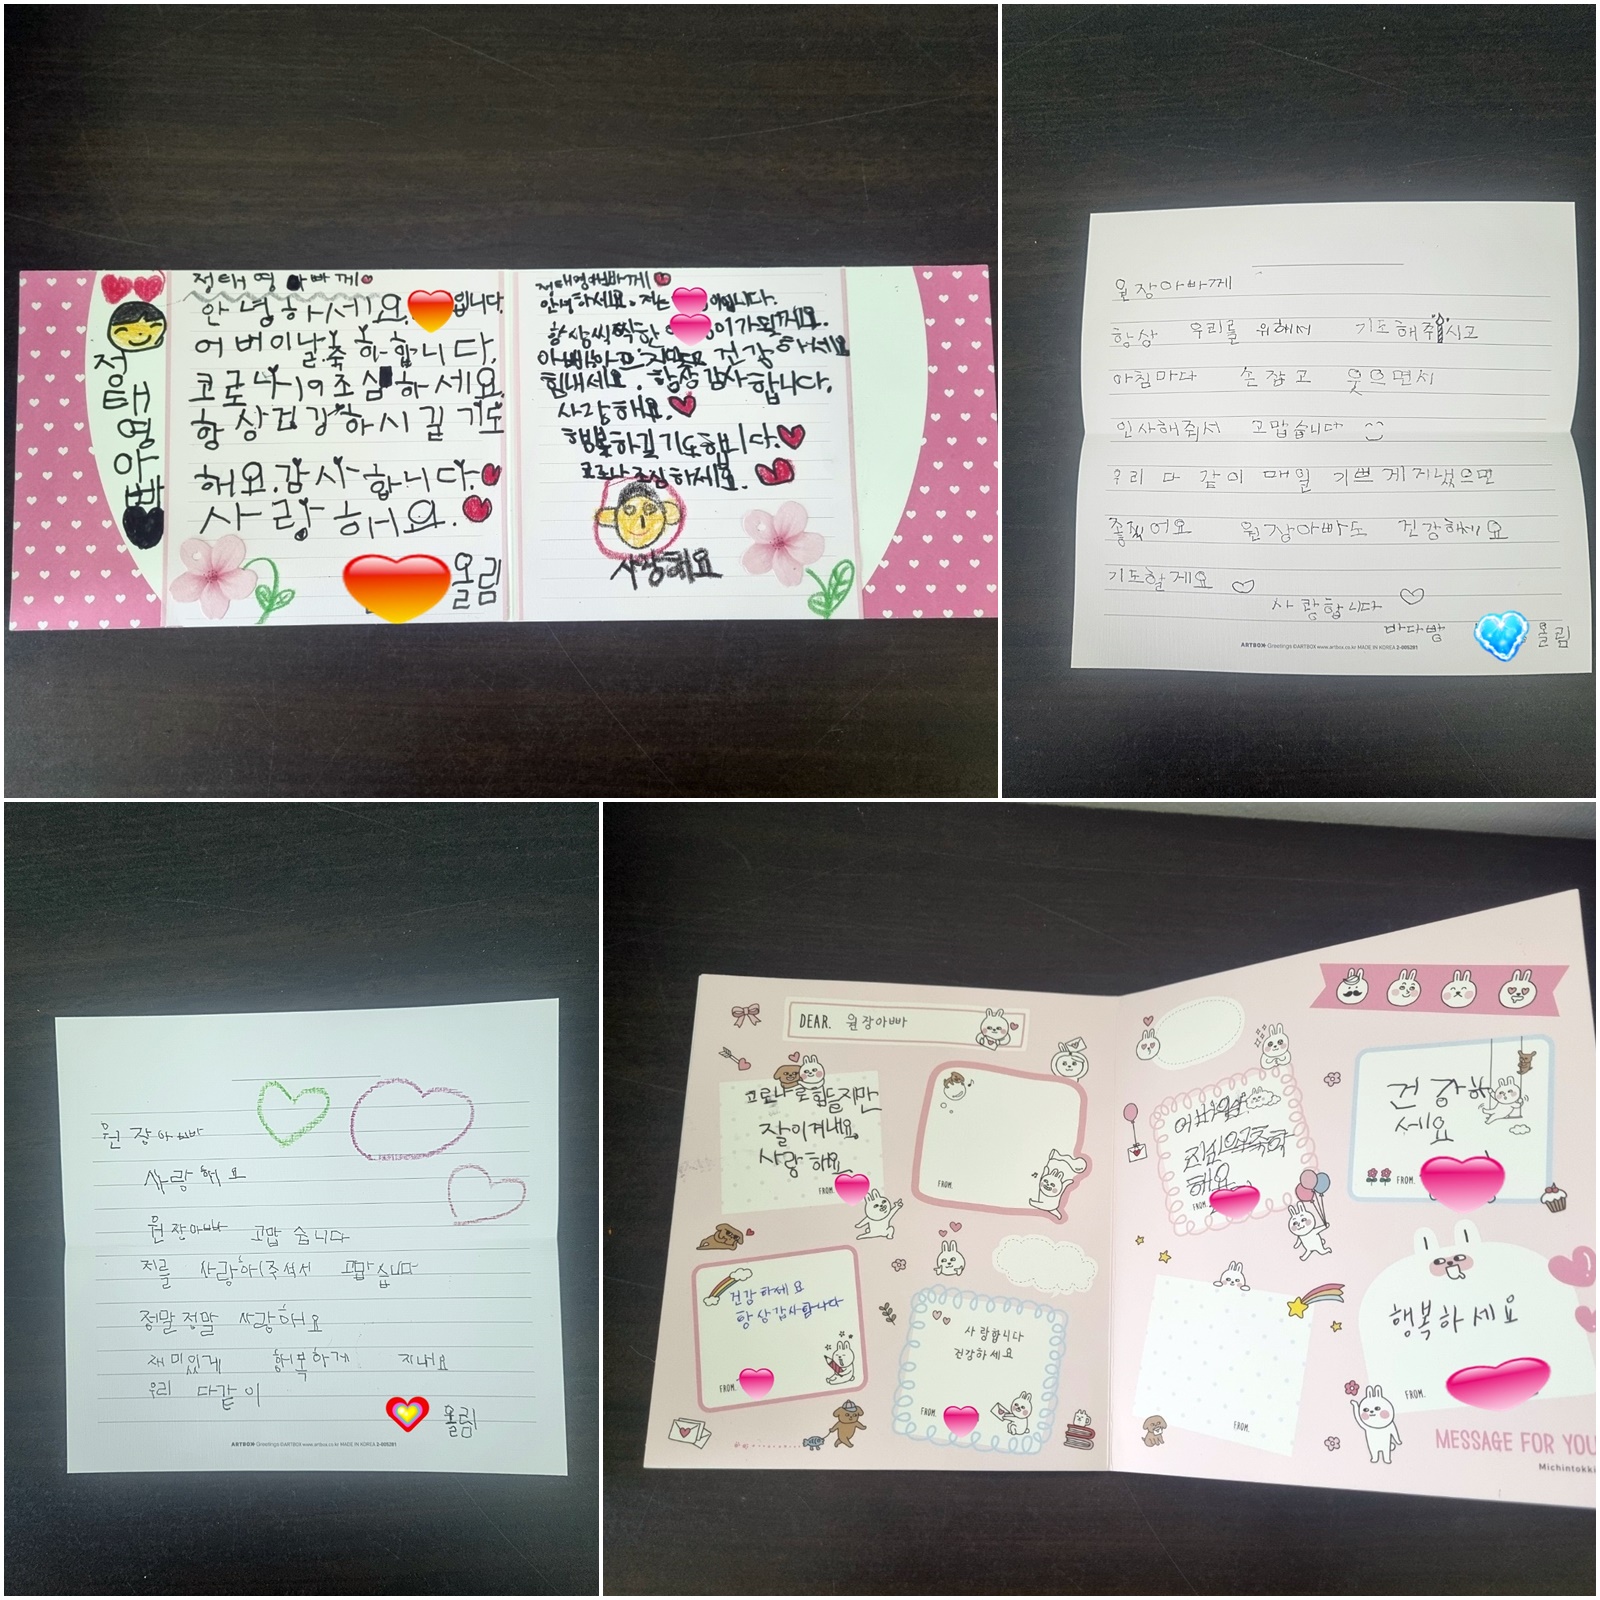 정태영아빠
정태영 아빠께
안녕하세요. 입니다.
어버이날 축하합니다.
코로나19조심하세요.
항상건강하시길 기도
해요.감사합니다.
사랑해요.
올림
정태영아빠께
안녕하세요. 저는 입니다.
항상씩씩한 이가될께요.
건강하세요
힘내세요. 항상감사합니다.
사랑해요.
행복하길기도합니다.
코로나 조심하세요.
사랑해요
원장아빠께
항상 우리를 위해서 기도해주시고
아침마다 손잡고 웃으면서
인사해줘서 고맙습니다
우리 다 같이 매일 기쁘게지냈으면
좋겠어요 원장아빠도 건강하세요
기도할게요
사랑합니다
바다방
올림
ARTBOX Greetings ©ARTBOX www.artbox.co.kr MADE IN KOREA 2-005281
원장아빠
사랑해요
원장아빠 고맙습니다
저를 사랑하(주셔서 고맙습니다
정말정말 사랑해요
재미있게 행복하게 지내요
우리 다같이
올림
ARTBOX Greetings ©ARTBOX www.artbox.co.kr MADE IN KOREA 2-005281
DEAR. 원장아빠
코로나로힘들지만
잘이겨내요
사랑해요
FROM.
FROM.
건강하세요
항상감사합니다
FROM.
사랑합니다
건강하세요
FROM.
어버이날
진심으로축하
해요
FROM.
건강하
세요
FROM.
FROM.
행복하세요
FROM.
MESSAGE FOR YOU
Michintokki